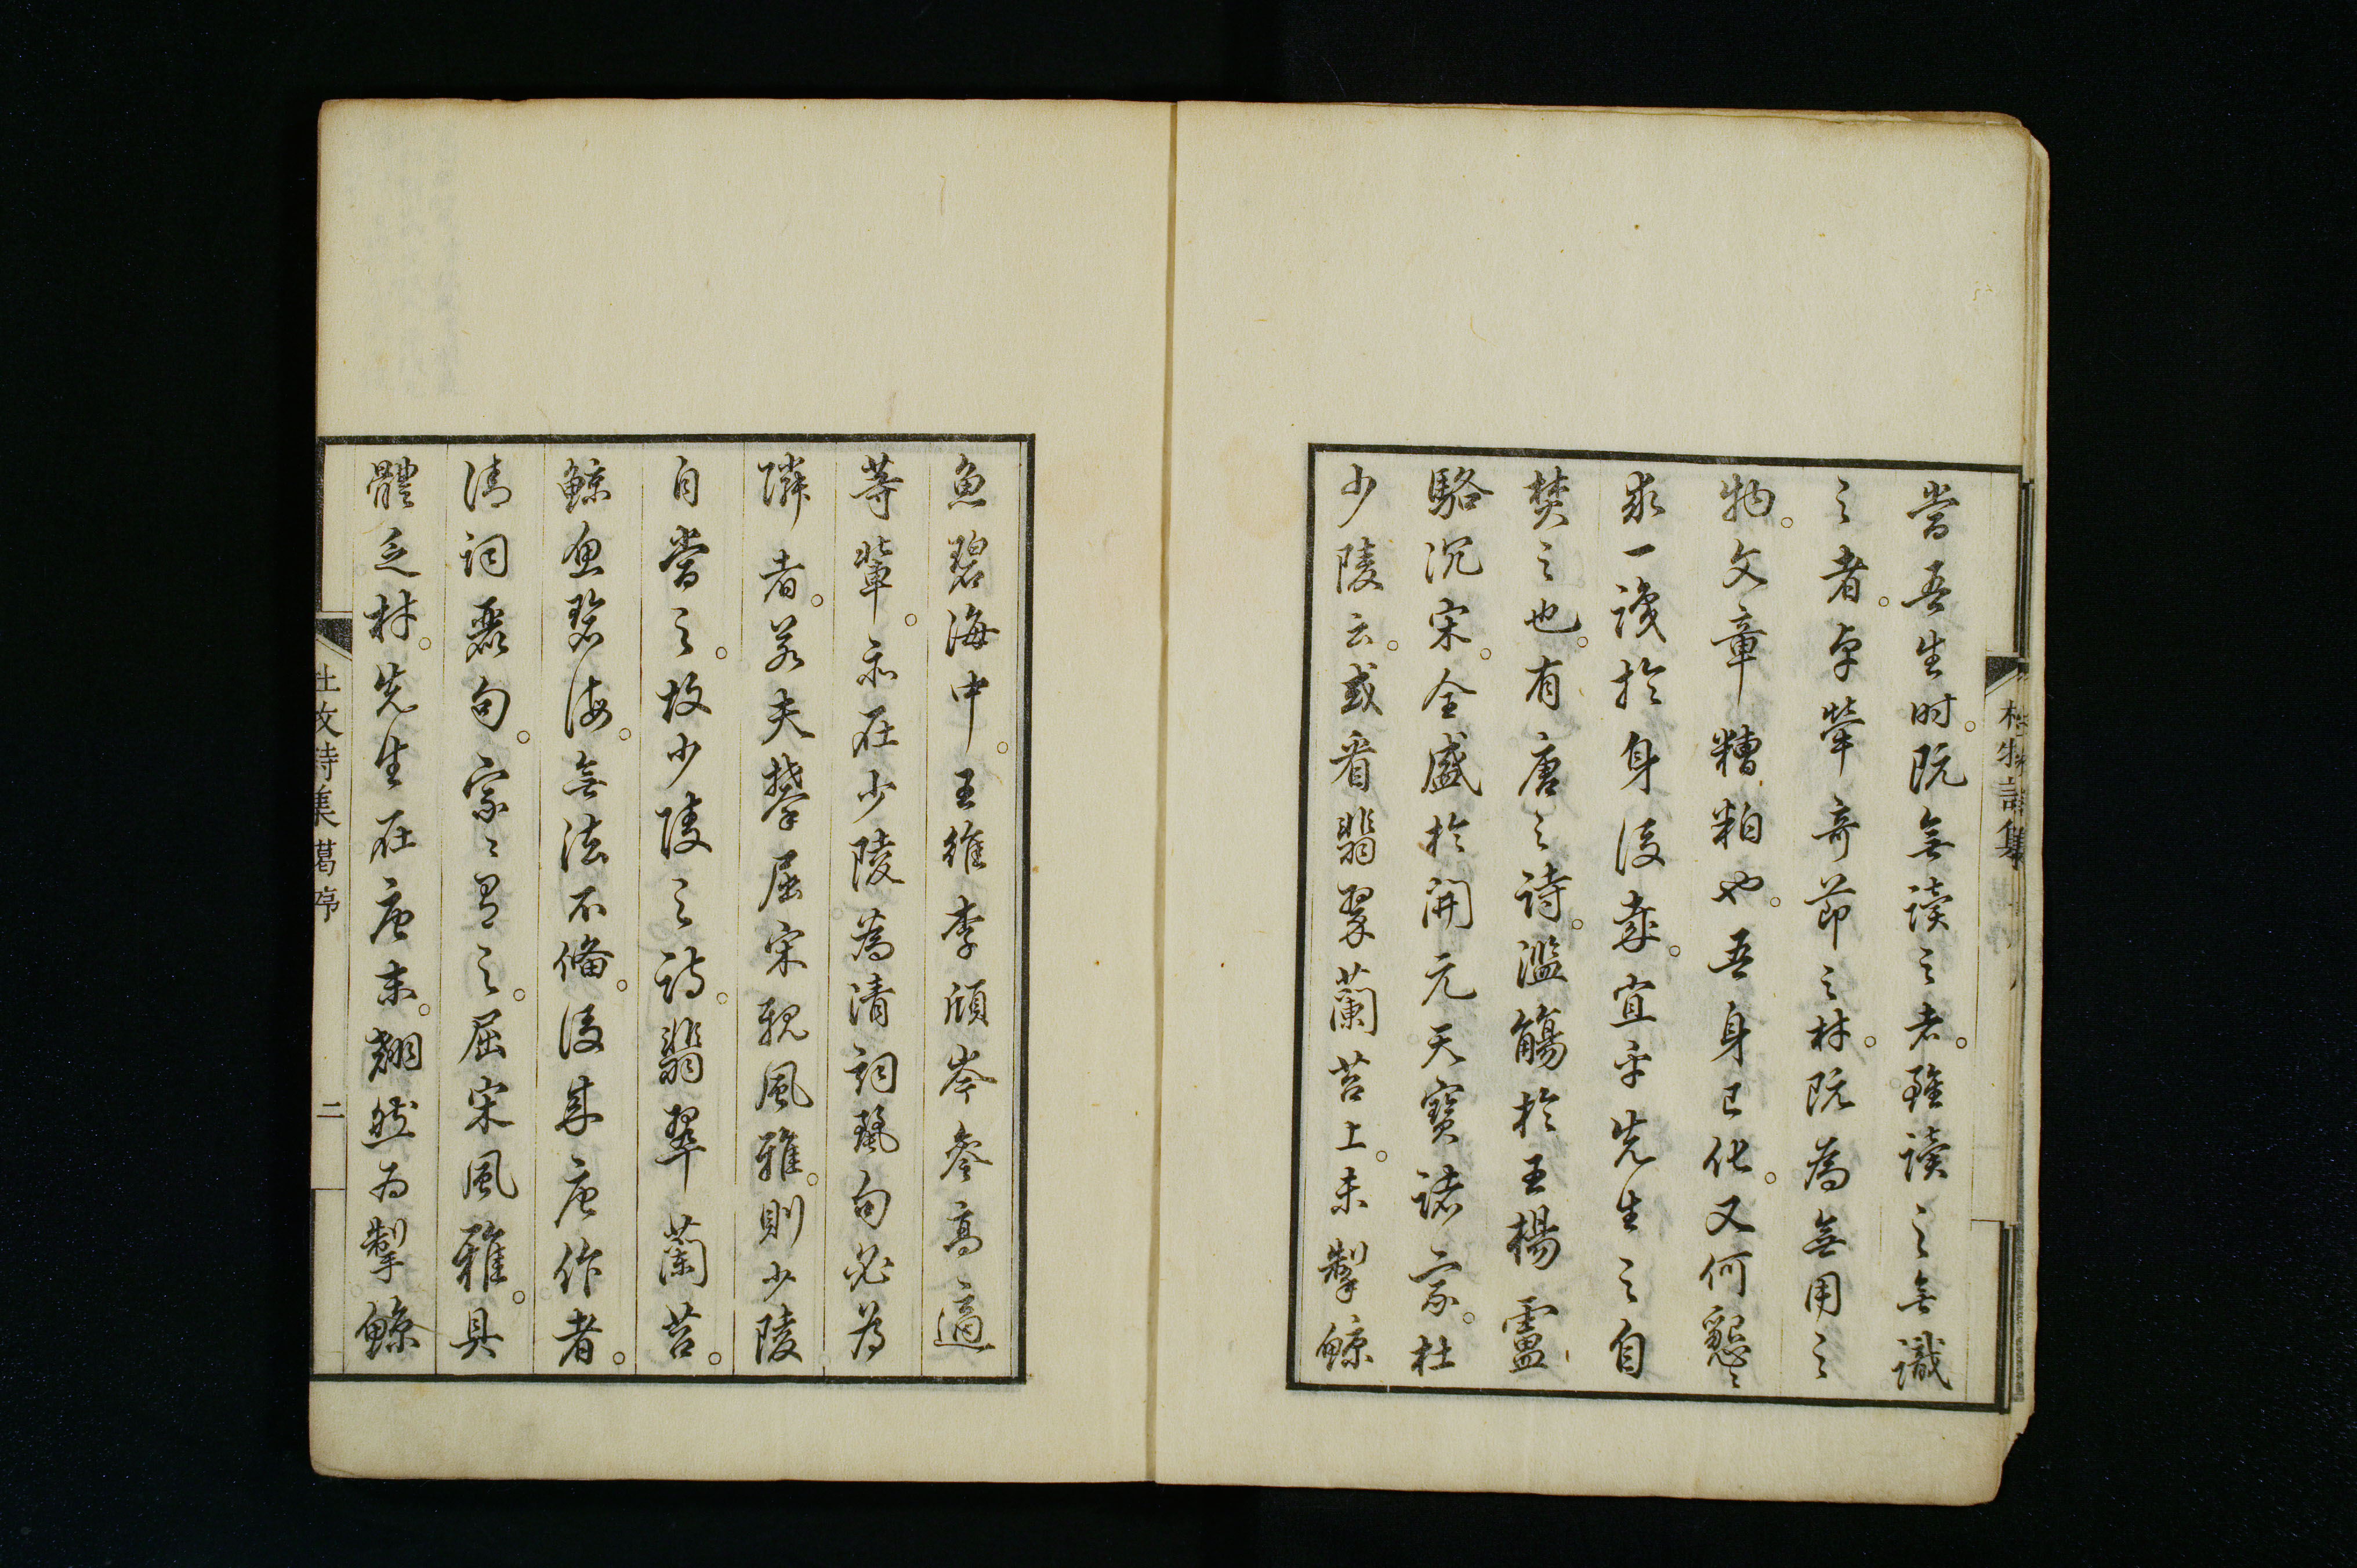 當吾生時。既無讀之者。雖讀之無識
之者。卓犖奇節之材。既為無用之
物。文章糟粕也。吾身已化。又何懇〻
求一識於身後哉。宜乎先生之自
焚之也。有唐之詩。濫觴於王楊盧
駱沉宋。全盛於開元天寶諸家。杜
少陵云。或看翡翠蘭苕上。未掣鯨
魚碧海中。王維李頎岑參高適
等輩。亦在少陵為清詞麗句必為
隣者。若夫攀屈宋親風雅。則少陵
自當之。故少陵之詩。翡翠蘭苕。
鯨魚碧海。無法不備。後來唐作者。
清詞麗句。家〻有之。屈宋風雅。具
體乏材。先生在唐末。翹然為掣鯨
杜牧詩集
杜牧詩集 葛序 二